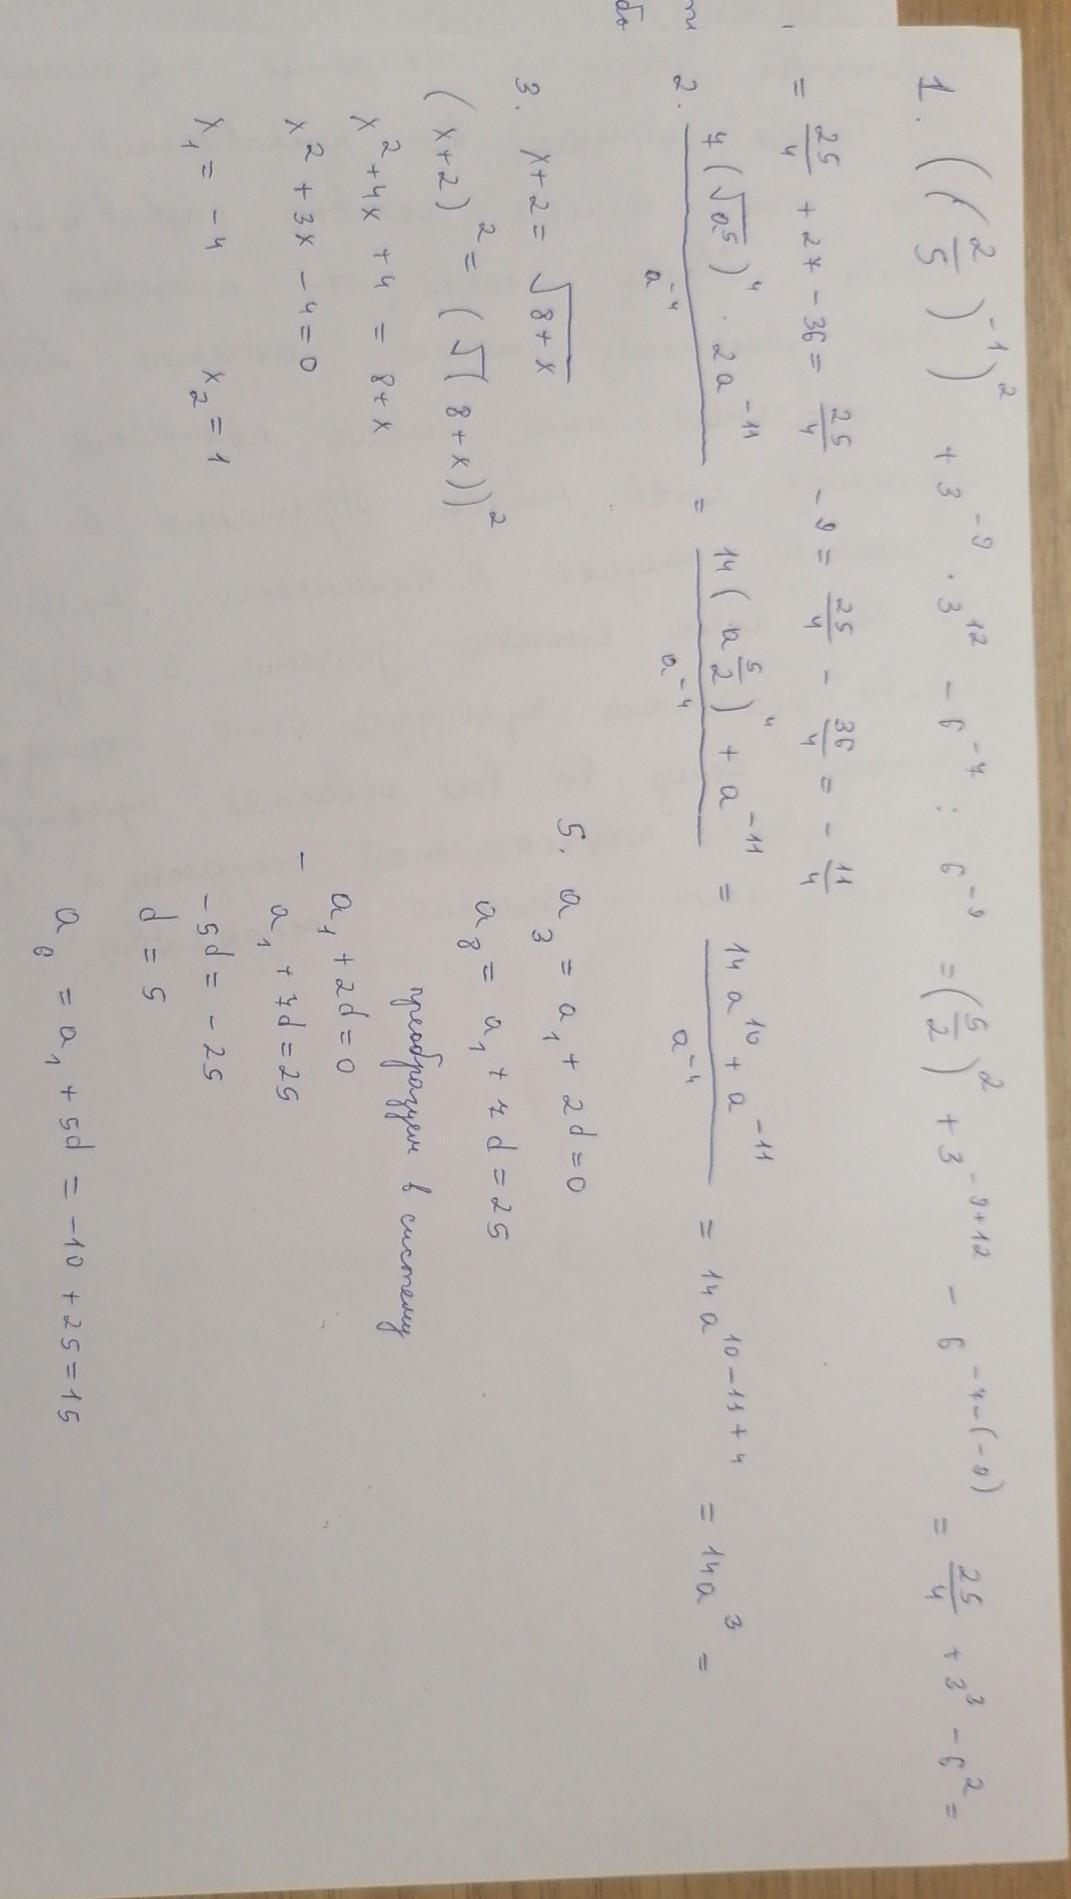 1. ((2/5)^-1)^2 + 3^-9 · 3^12 - 6^-7 : 6^-9 = (5/2)^2 + 3^-9+12 - 6^-7-(-9) = 25/4 + 3^3 - 6^2 =
= 25/4 + 27 - 36 = 25/4 - 9 = 25/4 - 36/4 = - 11/4
2. 7(√a^5)^4 · 2a^-11 / a^-4 = 14(a^5/2)^4 + a^-11 / a^-4 = 14a^10 + a^-11 / a^-4 = 14a^10-11+4 = 14a^3 =
3. x+2 = √8+x
(x+2)^2 = (√(8+x))^2
x^2 + 4x + 4 = 8+x
x^2 + 3x - 4 = 0
x1 = -4 x2 = 1
5. a3 = a1 + 2d = 0
a8 = a1 + 7d = 25
преобразуем в систему
- a1 + 2d = 0
a1 + 7d = 25
-5d = -25
d = 5
a6 = a1 + 5d = -10 + 25 = 15